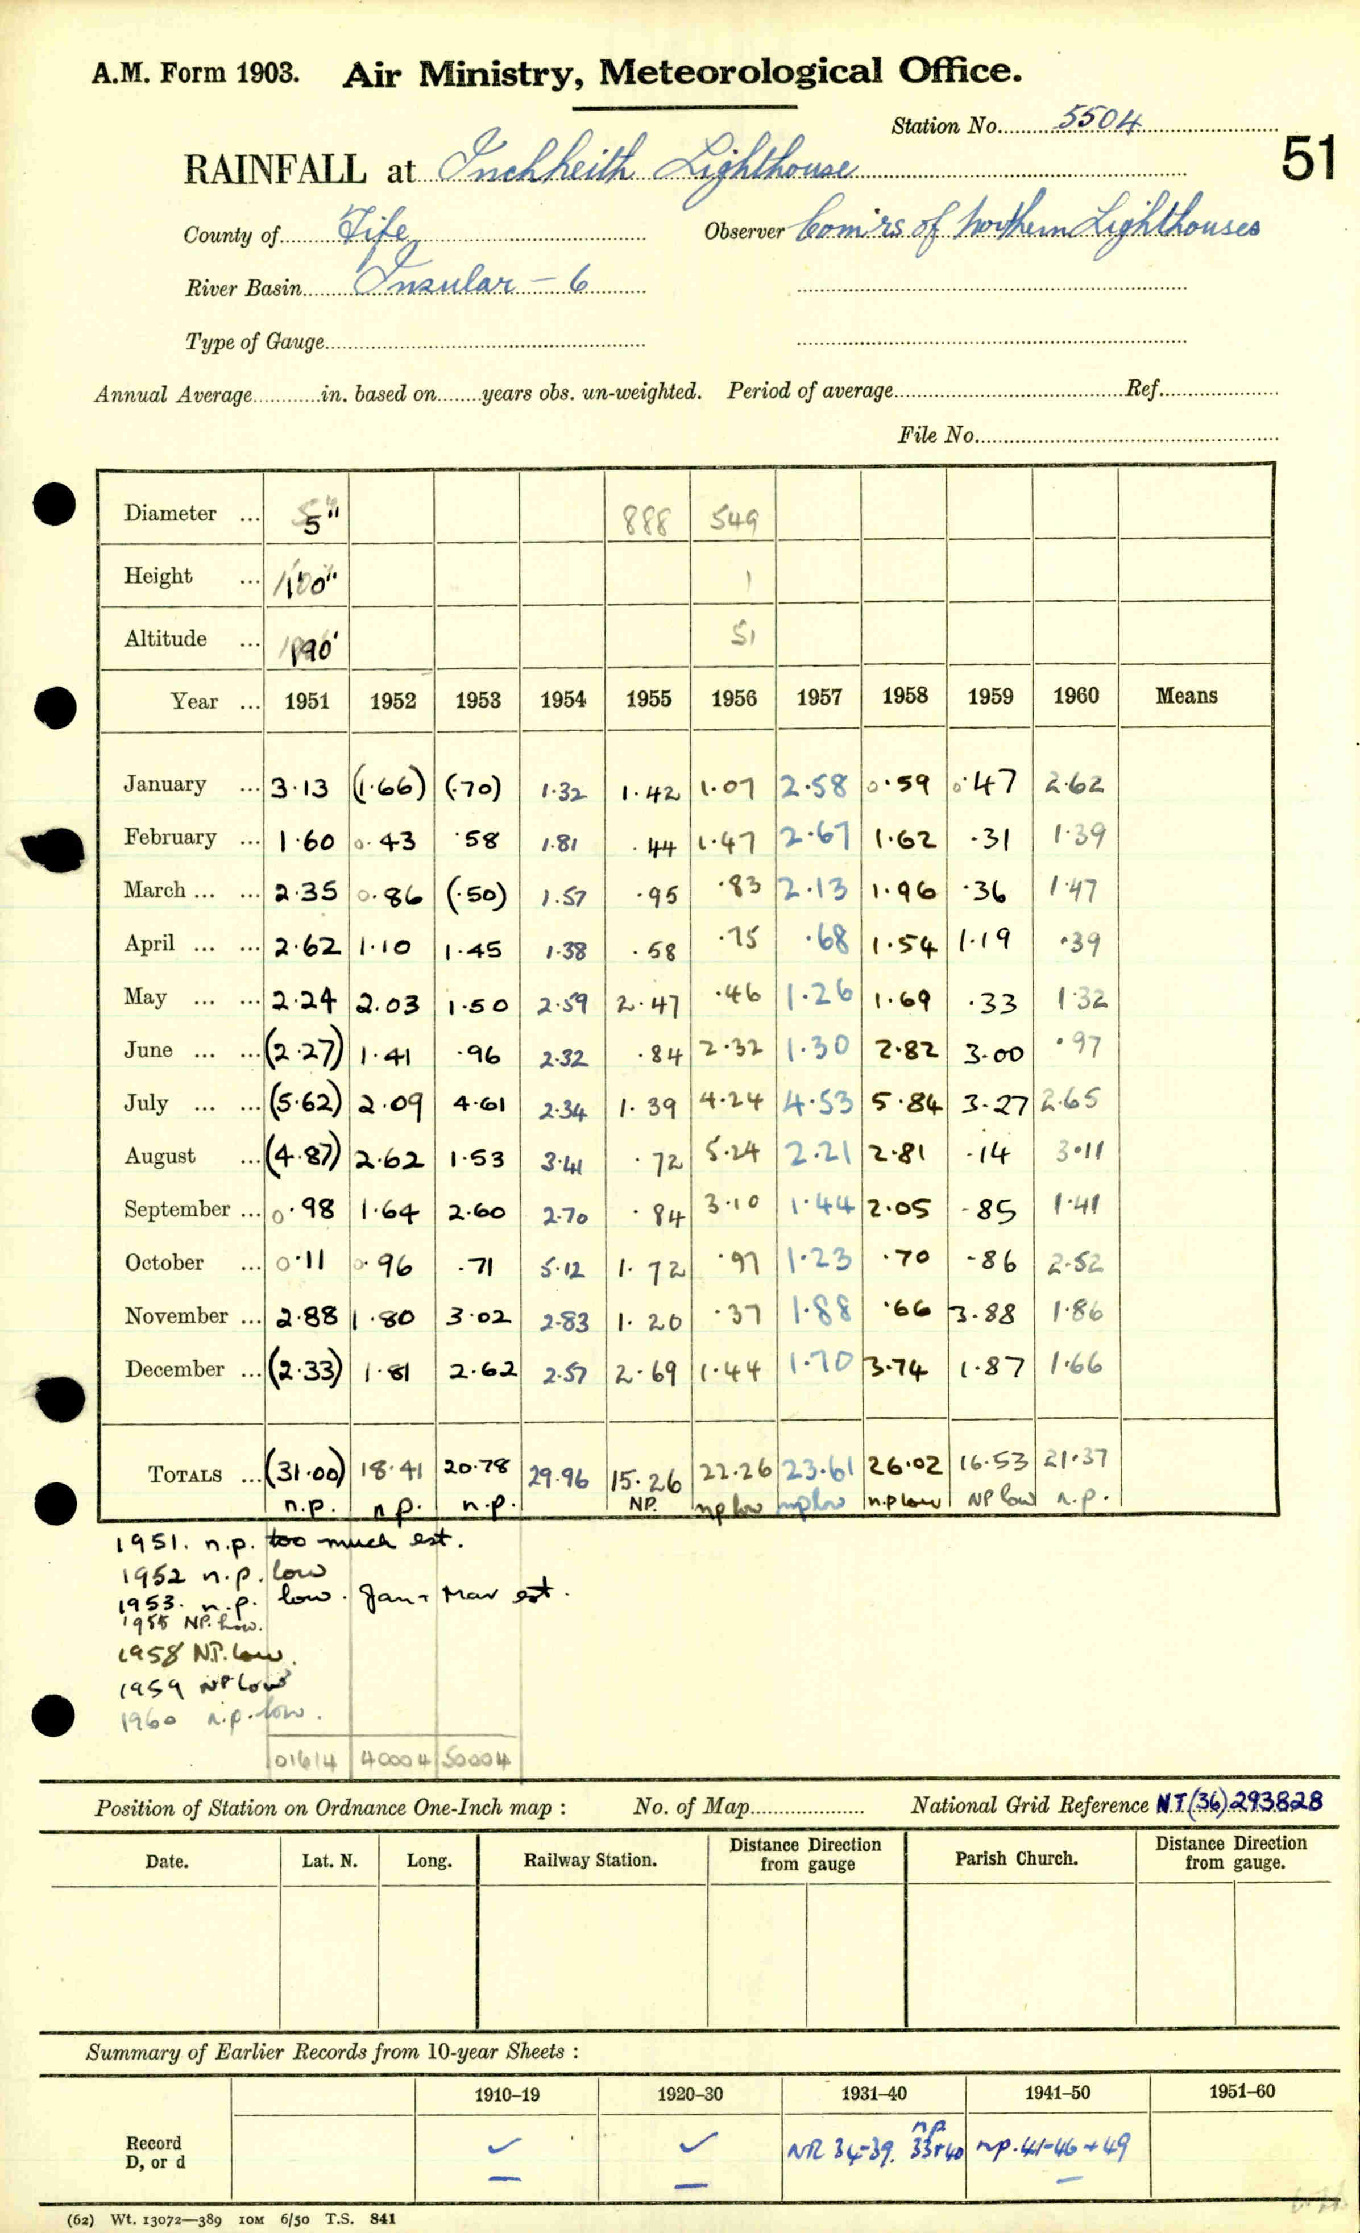 A.M. Form 1903. Air Ministry, Meteorological Office.
Station No. 5504
51
RAINFALL at Inchkeith Lighthouse
County of Fife Observer Comm'rs of Northern Lighthouses
River Basin Insular - 6
Type of Gauge
Annual Average in. based on years obs. un-weighted. Period of average Ref.
File No.
Diameter ... 5" 888 549
Height ... 1'0" 1
Altitude ... 190' 51
Year ... 1951 1952 1953 1954 1955 1956 1957 1958 1959 1960 Means
January ... 3·13 (1·66) (·70) 1·32 1·42 1·07 2·58 0·59 0·47 2·62
February ... 1·60 0·43 ·58 1·81 ·44 1·47 2·67 1·62 ·31 1·39
March ... ... 2·35 0·86 (·50) 1·57 ·95 ·83 2·13 1·96 ·36 1·47
April ... ... 2·62 1·10 1·45 1·38 ·58 ·75 ·68 1·54 1·19 ·39
May ... ... 2·24 2·03 1·50 2·59 2·47 ·46 1·26 1·69 ·33 1·32
June ... ... (2·27) 1·41 ·96 2·32 ·84 2·32 1·30 2·82 3·00 ·97
July ... ... (5·62) 2·09 4·61 2·34 1·39 4·24 4·53 5·84 3·27 2·65
August ... (4·87) 2·62 1·53 3·41 ·72 5·24 2·21 2·81 ·14 3·11
September ... 0·98 1·64 2·60 2·70 ·84 3·10 1·44 2·05 ·85 1·41
October ... 0·11 0·96 ·71 5·12 1·72 ·97 1·23 ·70 ·86 2·52
November ... 2·88 1·80 3·02 2·83 1·20 ·37 1·88 ·66 3·88 1·86
December ... (2·33) 1·81 2·62 2·57 2·69 1·44 1·70 3·74 1·87 1·66
TOTALS ... (31·00) 18·41 20·78 29·96 15·26 22·26 23·61 26·02 16·53 21·37
n.p. n p. n.p. NP. np low np low n.p low NP low n.p.
1951. n.p. too much est.
1952 n.p. low
1953. n.p. low. Jan + Mar est.
1955 NP. Low.
1958 N.P. low.
1959 NP Low
1960 n.p. low.
01614 40004 50004
Position of Station on Ordnance One-Inch map : No. of Map National Grid Reference N.T.(36) 293828
Date. Lat. N. Long. Railway Station. Distance Direction from gauge Parish Church. Distance Direction from gauge.
Summary of Earlier Records from 10-year Sheets :
1910–19 1920–30 1931–40 1941–50 1951–60
Record D, or d ✓ ✓ NR 34-39. np 33+40 np. 41-46 + 49
(62) Wt. 13072—389 10M 6/50 T.S. 841